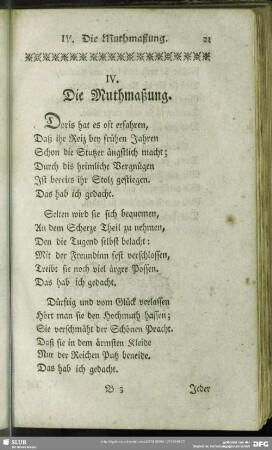 IV. Die Muthmaßung. 21
IV.
Die Muthmaßung.
Doris hat es oft erfahren,
Daß ihr Reiz bey frühen Jahren
Schon die Stutzer ängstlich macht;
Durch dis heimliche Vergnügen
Ist bereits ihr Stolz gestiegen.
Das hab ich gedacht.
Selten wird sie sich bequemen,
An dem Scherze Theil zu nehmen,
Den die Tugend selbst belacht:
Mit der Freundinn fest verschlossen,
Treibt sie noch viel ärgre Possen.
Das hab ich gedacht.
Dürftig und vom Glück verlassen
Hört man sie den Hochmuth hassen;
Sie verschmäht der Schönen Pracht.
Daß sie in dem ärmsten Kleide
Nur der Reichen Putz beneide.
Das hab ich gedacht.
B 3 Jeder
SLUB